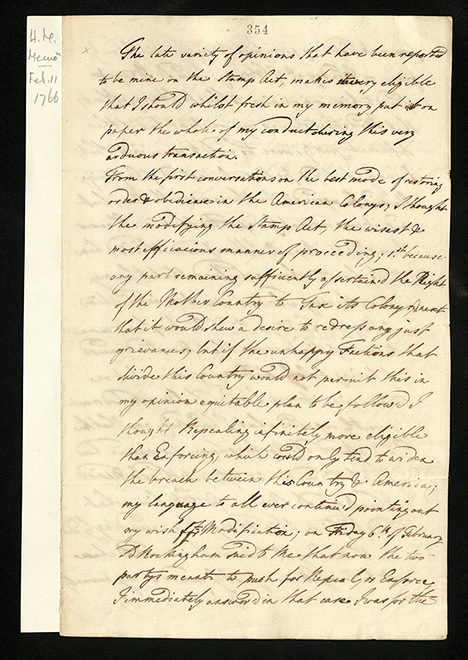 354
H.M.
Memo
Feb. 11
1766
The late variety of opinions that have been reported
to be mine on the Stamp Act, makes it very eligible
that I should whilst fresh in my memory put it on
paper the whole of my conduct during this very
arduous transaction.
From the first conversations on the best mode of restoring
order & obedience in the American Colonys; I thought
the modifying the Stamp Act, the wisest &
most efficacious manner of proceeding; 1st because
any part remaining sufficiently ascertain'd the Right
of the Mother Country to tax its Colonys & next
that it would shew a desire to redress any just
grievances; but if the unhappy Factions that
divide this Country would not permit this in
my opinion equitable plan to be follow'd I
thought Repealing infinitely more eligible
than Enforcing, which could only tend to widen
the breach between this Country & America;
my language to all ever continued pointing out
my wish for Modification; on Friday 6th of February
Ld Rockingham said to Me that now the two
partys meant to push for Repeal, or Enforce
I immediately answer'd in that case I was for the